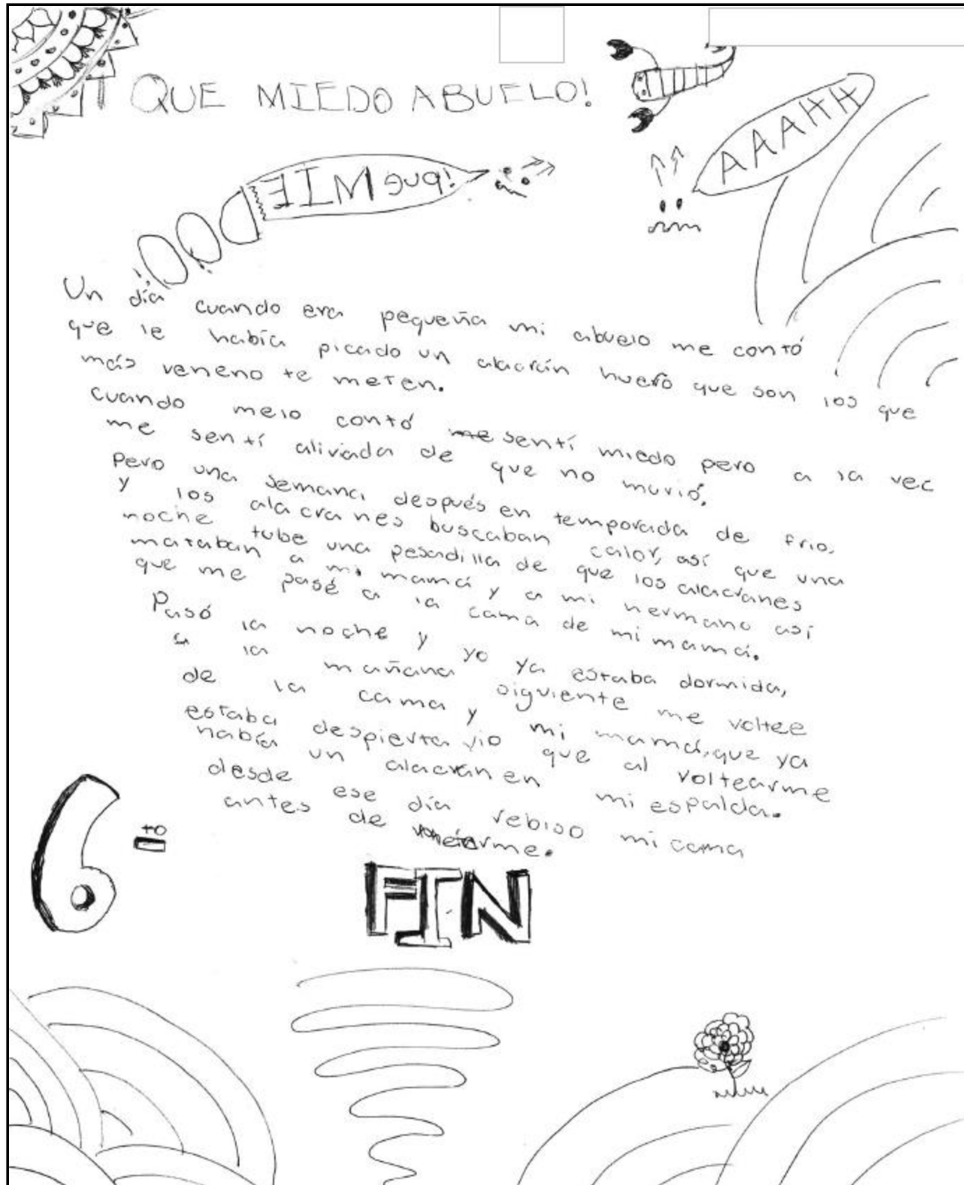 ¡QUE MIEDO ABUELO!
AAAHH
¡que MIE
DOO!
Un día cuando era pequeña mi abuelo me contó
que le había picado un alacrán huero que son los que
más veneno te meten.
Cuando melo contó me sentí miedo pero a la vec
me sentí aliviada de que no murió.
Pero una semana después en temporada de frio,
y los alacranes buscaban calor, así que una
noche tube una pesadilla de que los alacranes
mataban a mi mamá y a mi hermano así
que me pasé a la cama de mi mamá.
Pasó la noche y yo ya estaba dormida,
a la mañana siguiente me voltee
de la cama y mi mamá, que ya
estaba despierta vio que al voltearme
había un alacrán en mi espalda.
desde ese día rebiso mi cama
antes de meterme.
6to
FIN